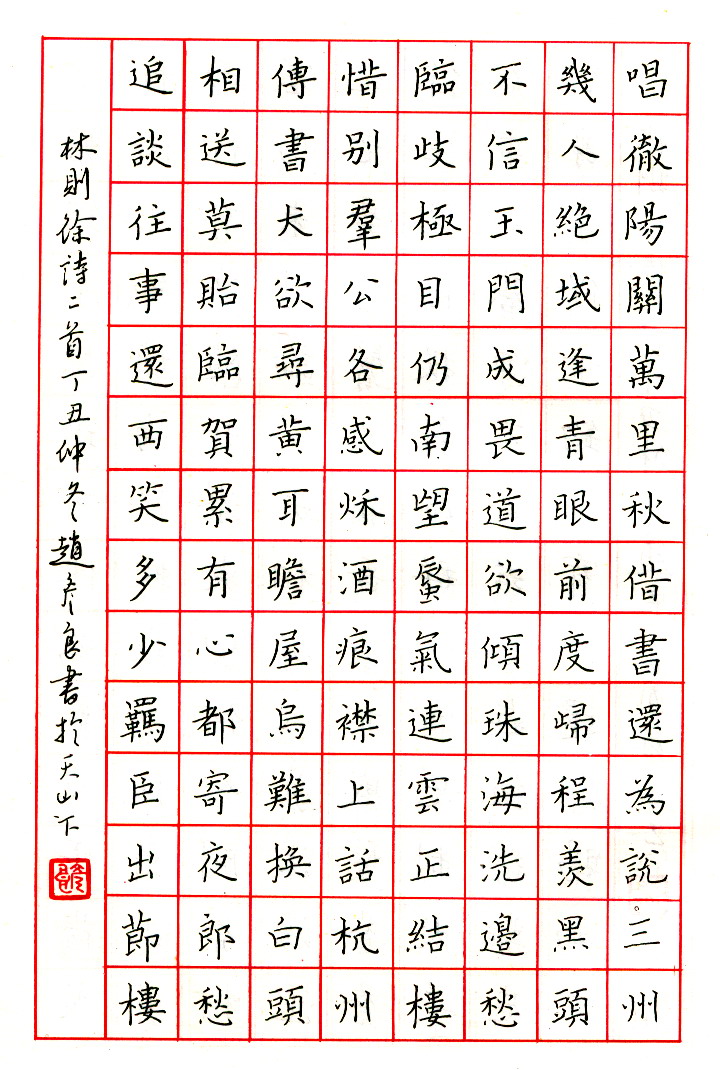 唱徹陽關萬里秋借書還為說三州
幾人絕域逢青眼前度歸程羨黑頭
不信玉門成畏道欲傾珠海洗邊愁
臨歧極目仍南望蜃氣連雲正結樓
惜別羣公各感秌酒痕襟上話杭州
傳書犬欲尋黃耳瞻屋烏難換白頭
相送莫貽臨賀累有心都寄夜郎愁
追談往事還西笑多少羈臣出節樓
林則徐詩二首丁丑仲冬趙彥良書於天山下